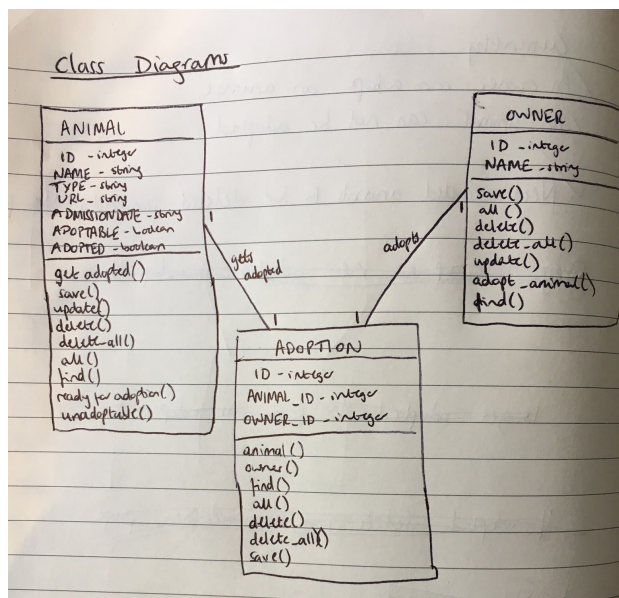 Class Diagrams
ANIMAL
ID - integer
NAME - string
TYPE - string
URL - string
ADMISSIONDATE - string
ADOPTABLE - boolean
ADOPTED - boolean
get adopted()
save()
update()
delete()
delete_all()
all()
find()
ready for adoption()
unadoptable()
1
gets
adopted
1
ADOPTION
ID - integer
ANIMAL_ID - integer
OWNER_ID - integer
animal()
owner()
find()
all()
delete()
delete_all()
save()
1
adopts
1
OWNER
ID - integer
NAME - string
save()
all()
delete()
delete_all()
update()
adopt_animal()
find()